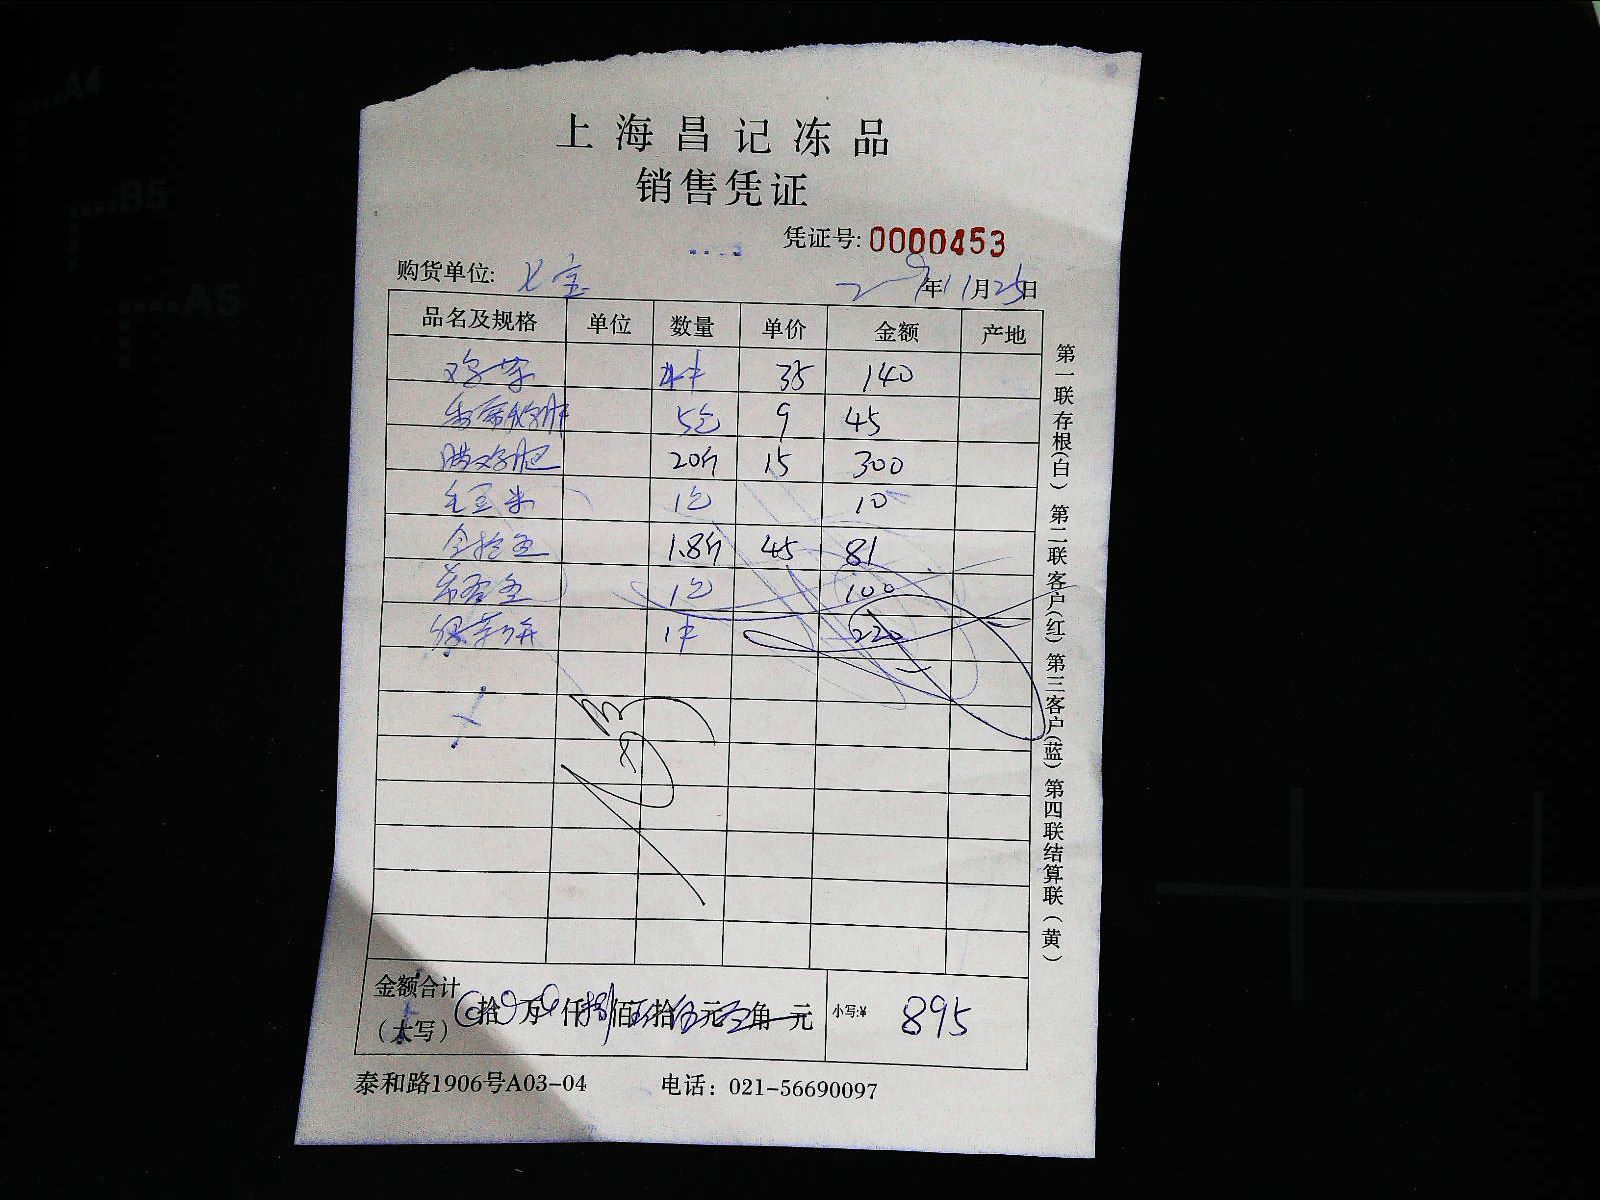 上海昌记冻品
销售凭证
凭证号: 0000453
购货单位: 七宝
年11月25日
品名及规格 单位 数量 单价 金额 产地
35 140
5包 9 45
20斤 15 300
毛豆米 1包 10
1.8斤 45 81
1包 100
1件 220
金额合计
(大写) 拾 万 仟 捌佰 玖拾伍元 角 元 小写:¥ 895
泰和路1906号A03-04 电话: 021-56690097
第一联存根(白) 第二联客户(红) 第三客户(蓝) 第四联结算联(黄)
A4
B5
A5